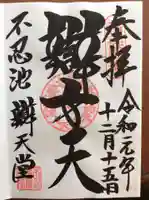 奉拝
令和元年
十二月十五日
辯才天
不忍池
辯天堂